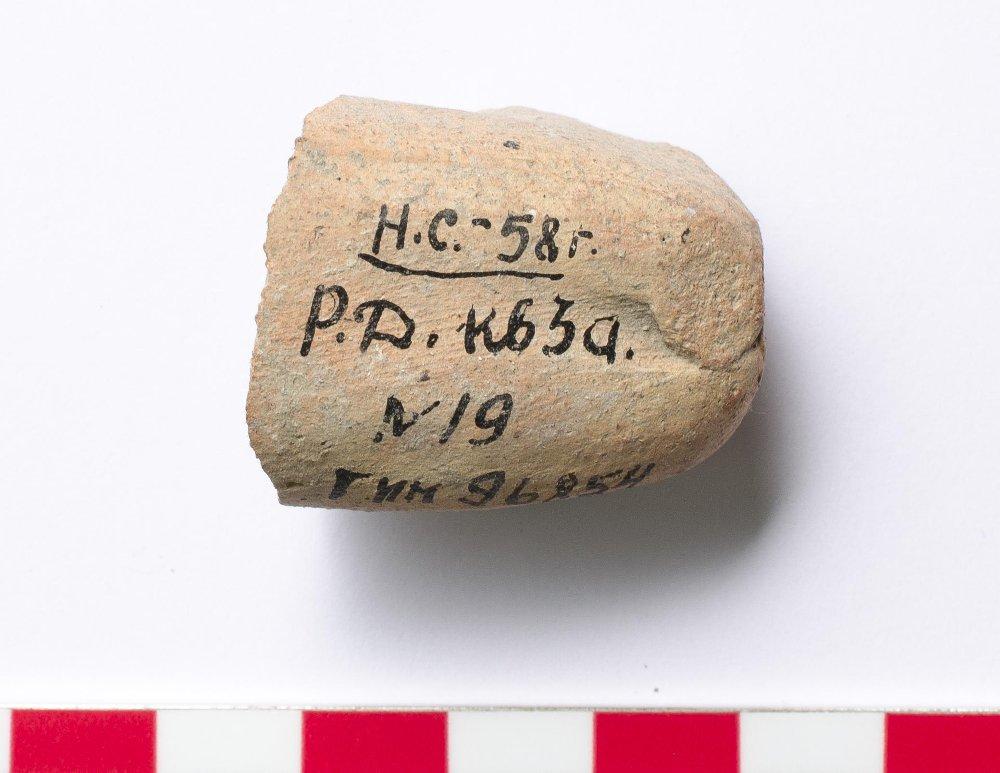 Н.С.-58г.
Р.Д. кв3а.
№19
ГИМ 96854